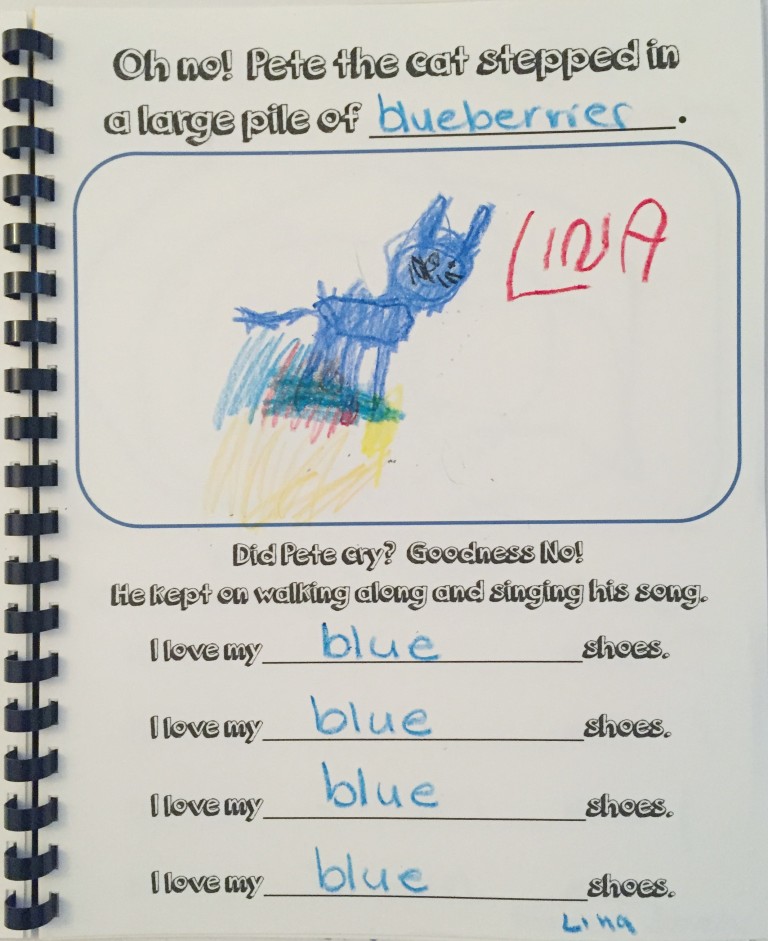 Oh no! Pete the cat stepped in
a large pile of blueberries.
LINA
Did Pete cry? Goodness No!
He kept on walking along and singing his song.
I love my blue shoes.
I love my blue shoes.
I love my blue shoes.
I love my blue shoes.
Lina